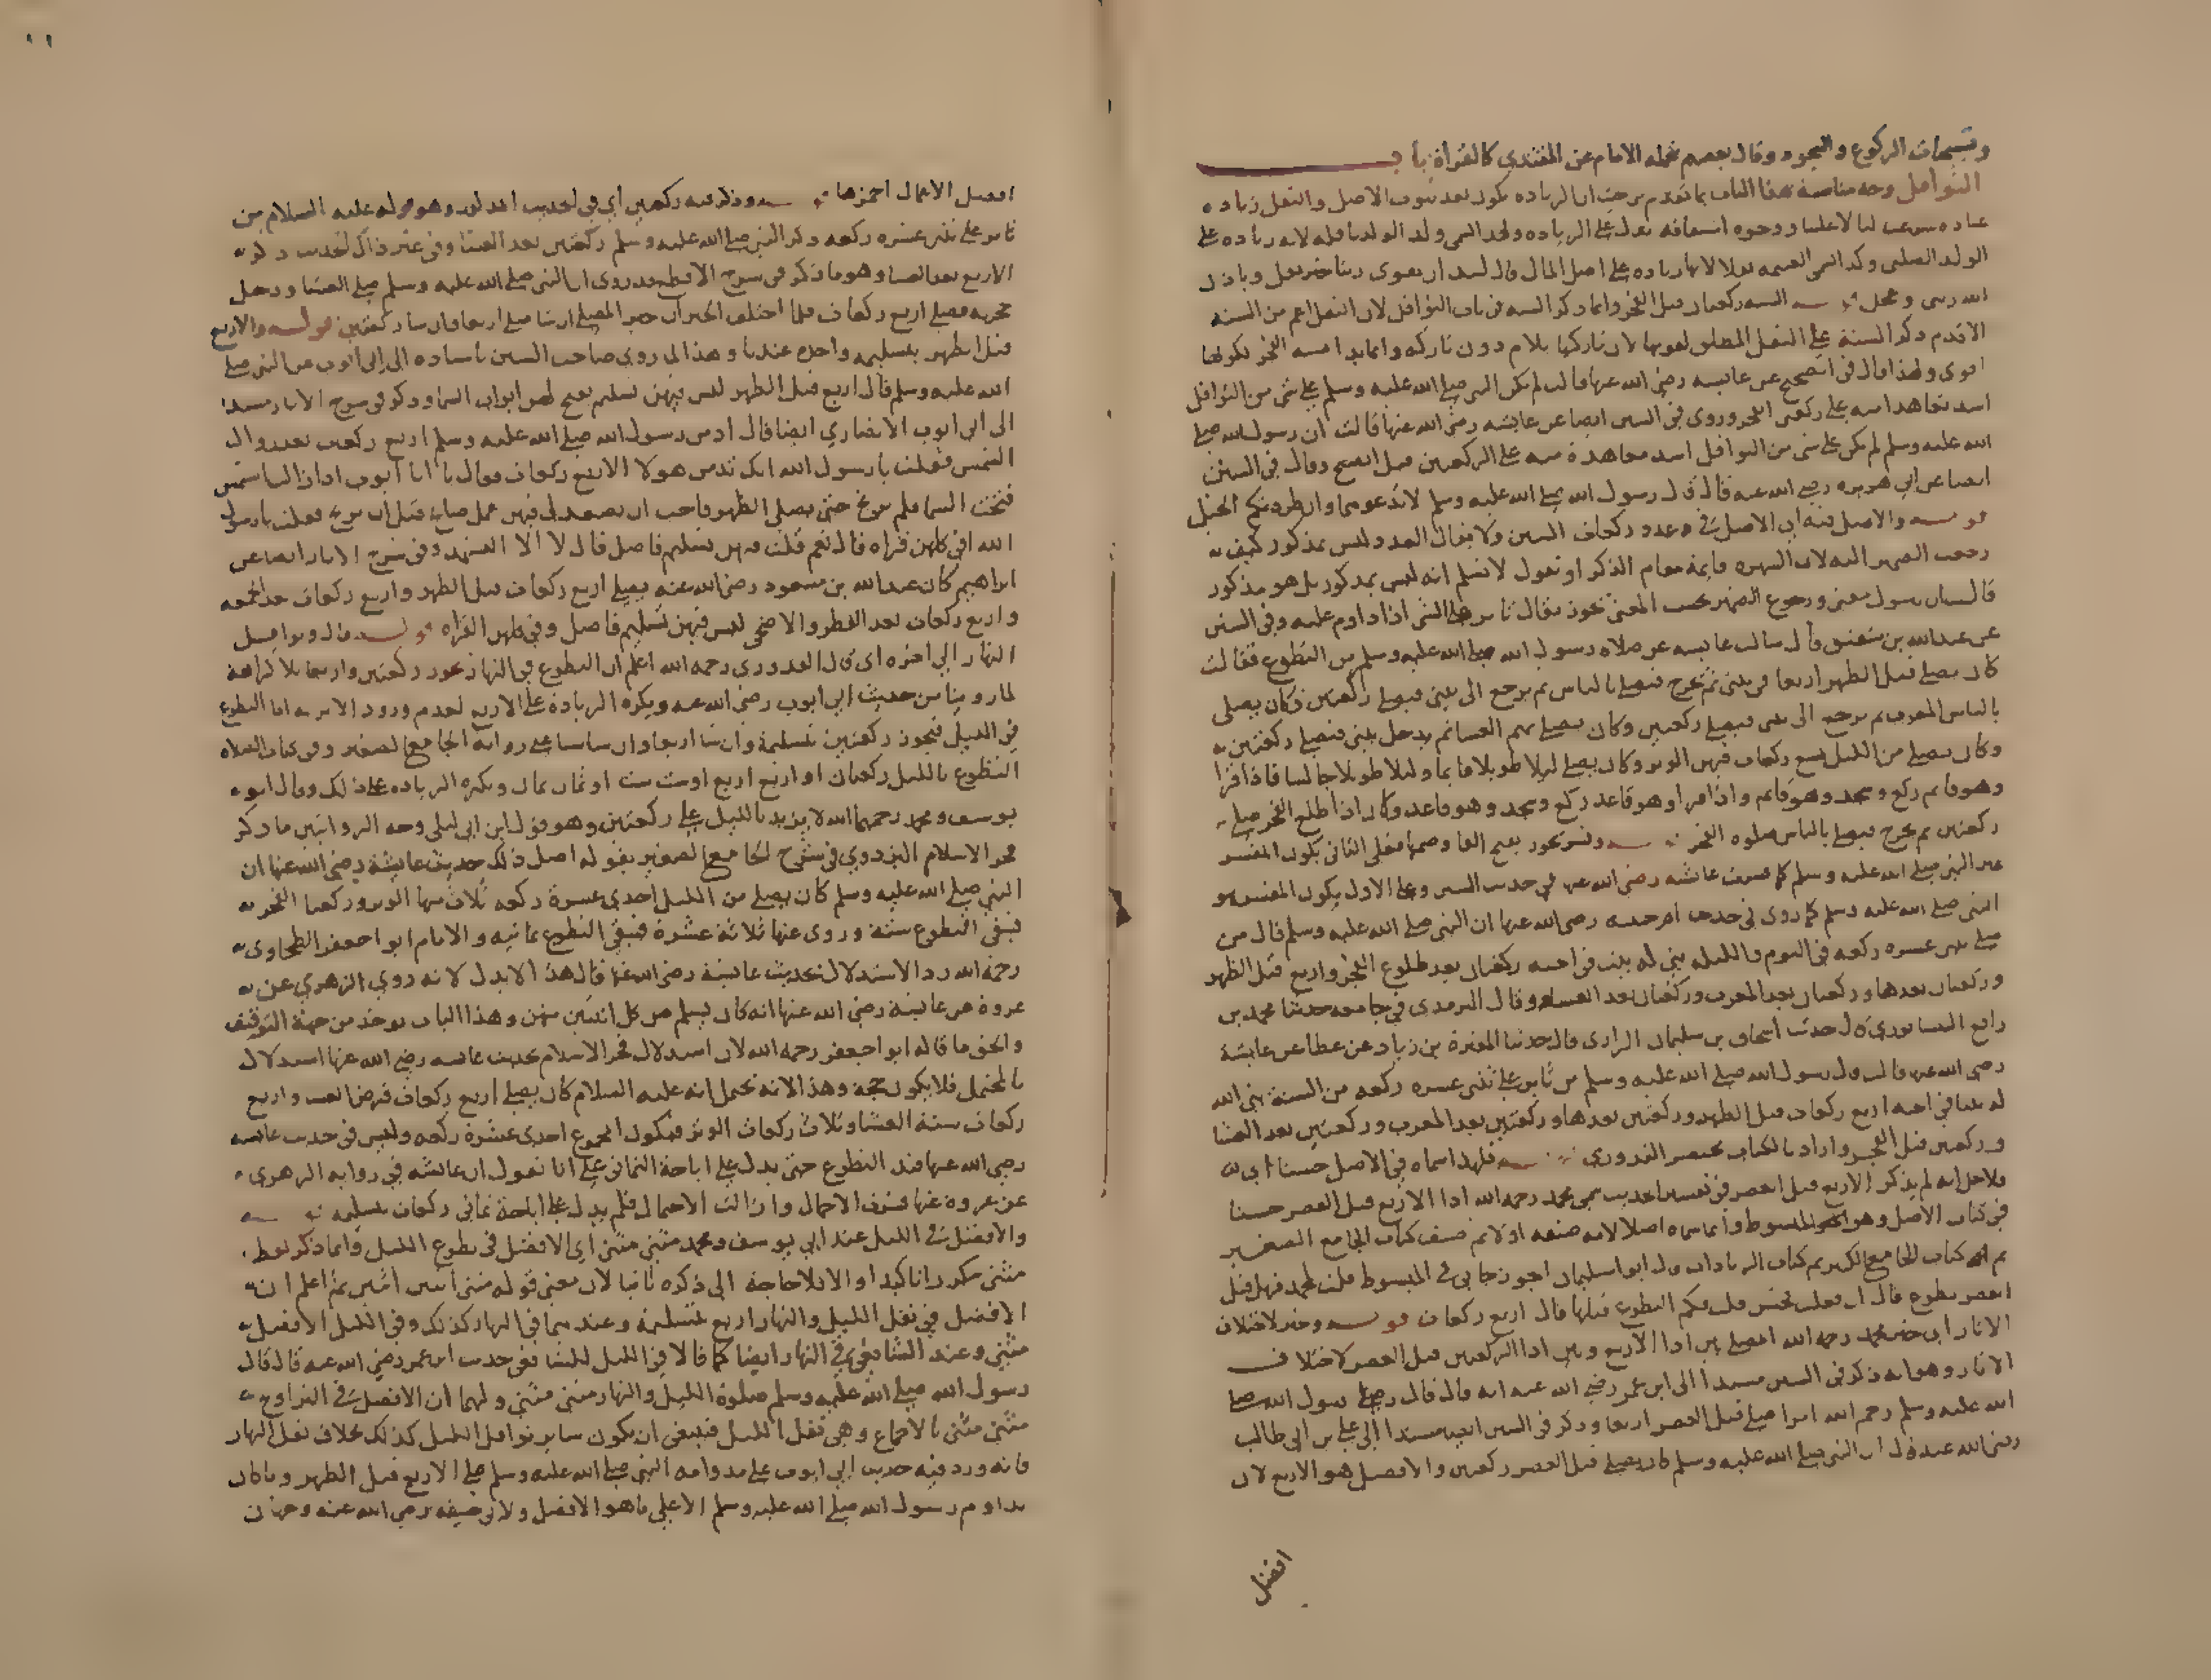 وتسبيحات الركوع والسجود وقال بعضهم تحمله الامام عن المقتدي كالقراة باب
النوافل وجه مناسبة هذا الباب بما تقدم من حيث ان الزياده تكون بعد ثبوت الاصل والنفل زياده
عباده شرعت لنا لا علينا ووجوه اشتقاقه تدل على الزياده ولهذا سمى ولد الولد نافله لانه زياده على
الولد الصلبى وكذا سمى الغنيمه نفلا لانها زياده على اصل المال قال لبيد ان تقوى ربنا خير نفل وباذن
الله ريثى وعجل قوله السنه ركعتان قبل الفجر وانما ذكر السنه فى باب النوافل لان النفل اعم من السنه
الا قدم ذكر السنة على النفل المطلق لقوتها لان تاركها يلام دون تاركه وانما بدا بسنه الفجر لكونها
اقوى ولهذا قال فى الصحيح عن عايشه رضى الله عنها قالت لم يكن النبى صلى الله عليه وسلم على شى من النوافل
اشد تعاهدا منه على ركعتى الفجر وروى فى السنن ايضا عن عايشه رضى الله عنها قالت ان رسول الله صلى
الله عليه وسلم لم يكن على شى من النوافل اشد معاهدة منه على الركعتين قبل الصبح وقال فى السنن
ايضا عن ابى هريره رضى الله عنه قال قال رسول الله صلى الله عليه وسلم لا تدعوهما وان طردتكم الخيل
قوله والاصل فيه اى الاصل فى عدد ركعات السنن ولا يقال العدد ليس بمذكور كيف
رجعت الضمير اليه لان الشهره قايمة مقام الذكر او نقول لا نسلم انه ليس بمذكور بل هو مذكور
عن عبد الله بن شقيق قال سالت عايشه عن صلاه رسول الله صلى الله عليه وسلم من التطوع فقالت
كان يصلى قبل الظهر اربعا فى بيتى ثم يخرج فيصلى بالناس ثم يرجع الى بيتى فيصلى ركعتين وكان يصلى
بالناس المغرب ثم يرجع الى بيتى فيصلى ركعتين وكان يصلى بهم العشا ثم يدخل بيتى فيصلى ركعتين
وكان يصلى من الليل تسع ركعات فيهن الوتر وكان يصلى ليلا طويلا قايما وليلا طويلا جالسا فاذا قرا
وهو قايم ركع وسجد وهو قايم واذا قرا وهو قاعد ركع وسجد وهو قاعد وكان اذا طلع الفجر صلى
ركعتين ثم يخرج فيصلى بالناس صلوه الفجر
النبى صلى الله عليه وسلم كما روى فى حديث ام حبيبه رضى الله عنها ان النبى صلى الله عليه وسلم قال من
صلى ثنتى عشره ركعه فى اليوم والليله بنى له بيت فى الجنه ركعتان بعد طلوع الفجر واربع قبل الظهر
وركعتان بعدها وركعتان بعد المغرب وركعتان بعد العشا وقال الترمذى فى جامعه حدثنا محمد بن
رافع النيسابوري قال حدثنا اسحاق بن سليمان الرازى قال حدثنا المغيرة بن زياد عن عطا عن عايشة
رضى الله عنها قالت قال رسول الله صلى الله عليه وسلم من ثابر على ثنتى عشره ركعه من السنة بنى الله
له بيتا فى الجنه اربع ركعات قبل الظهر وركعتين بعدها وركعتين بعد المغرب وركعتين بعد العشا
وركعتين قبل الفجر واراد بالكتاب مختصر القدورى قوله فلهذا سماه فى الاصل حسنا اى
فلاجل انه لم يذكر الاربع قبل العصر فى تفسير الحديث سمى محمد رحمه الله ادا الاربع قبل العصر حسنا
فى كتاب الاصل وهو المبسوط وانما سماه اصلا لانه صنفه اولا ثم صنف كتاب الجامع الصغير
ثم كتاب الجامع الكبير ثم كتاب الزيادات قال ابو سليمان الجوزجانى فى المبسوط قلت لمحمد فهل قبل
العصر تطوع قال ان فعلت فحسن قلت فكم التطوع قبلها قال اربع ركعات قوله وخير لاختلاف
الاثار اى خير محمد رحمه الله المصلى بين ادا الاربع وبين ادا الركعتين قبل العصر لاختلاف
الاثار وهو انه ذكر فى السنن مسندا الى ابن عمر رضى الله عنه انه قال قال رسول الله صلى
الله عليه وسلم رحم الله امرا صلى قبل العصر اربعا وذكر فى السنن ايضا مسندا الى على بن ابى طالب
رضى الله عنه قال ان النبى صلى الله عليه وسلم كان يصلى قبل العصر ركعتين والافضل هو الاربع لان
افضل
١١
افضل الاعمال احمزها قوله وذكر فيه ركعتين اى فى الحديث المذكور وهو قوله عليه السلام من
ثابر على ثنتى عشره ركعه ذكر النبى صلى الله عليه وسلم ركعتين بعد العشا وفى غير ذاك الحديث ذكر
الاربع بعد العشا وهو ما ذكر فى شرح الاقطع وروى ان النبى صلى الله عليه وسلم صلى العشا ودخل
حجرته فصلى اربع ركعات فلما اختلف الخبران خير المصلى ان شا صلى اربعا وان شا ركعتين قوله والاربع
قبل الظهر بتسليمه واحده عندنا وهذا لما روى صاحب السنن باسناده الى ابى ايوب عن النبى صلى
الله عليه وسلم قال اربع قبل الظهر ليس فيهن تسليم تفتح لهن ابواب السما وذكر فى شرح الاثار مسندا
الى ابى ايوب الانصاري ايضا قال ادمن رسول الله صلى الله عليه وسلم اربع ركعات بعد زوال
الشمس فقلت يا رسول الله انك تدمن هولا الاربع ركعات فقال يا ابا ايوب اذا زالت الشمس
فتحت السما فلم ترتج حتى يصلى الظهر فاحب ان يصعد لى فيهن عمل صالح قبل ان ترتج فقلت يا رسول
الله افى كلهن قراه قال نعم قلت فيهن تسليم فاصل قال لا الا التشهد وفى شرح الاثار ايضا عن
ابراهيم كان عبد الله بن مسعود رضى الله عنه يصلى اربع ركعات قبل الظهر واربع ركعات بعد الجمعه
واربع ركعات بعد الفطر والاضحى ليس فيهن تسليم فاصل وفى كلهن القراه قوله قال ونوافل
النهار الى اخره اى قال القدورى رحمه الله اعلم ان التطوع فى النهار يجوز ركعتين واربعا بلا كراهة
لما روينا من حديث ابى ايوب رضى الله عنه ويكره الزيادة على الاربع لعدم ورود الاثر به اما التطوع
فى الليل فيجوز ركعتين بتسليمة وان شا اربعا وان شا ستا على رواية الجامع الصغير وفى كتاب الصلاه
التطوع بالليل ركعتان او اربع اربع او ست ست او ثمان ثمان ويكره الزياده على ذلك وقال ابو
يوسف ومحمد رحمهما الله لا يزيد بالليل على ركعتين وهو قول ابن ابى ليلى وجه الروايتين ما ذكر
فخر الاسلام البزدوي فى شرح الجامع الصغير بقوله اصل ذلك حديث عايشة رضى الله عنها ان
النبى صلى الله عليه وسلم كان يصلى من الليل احدى عشرة ركعه ثلاث منها الوتر وركعتا الفجر
فبقى التطوع ستة وروى عنها ثلاثة عشرة فبقى التطوع ثمانيه والامام ابو جعفر الطحاوى
رحمه الله رد الاستدلال بحديث عايشة رضى الله عنها قال هذا لا يدل لانه روي الزهري عن
عروة عن عايشة رضى الله عنها انه كان يسلم من كل اثنتين منهن وهذا الباب يوخذ من جهة التوقيف
والحق ما قاله ابو جعفر رحمه الله لان استدلال فخر الاسلام بحديث عايشه رضى الله عنها استدلال
بالمحتمل فلا يكون حجة وهذا لانه يحتمل انه عليه السلام كان يصلى اربع ركعات فرض العشا واربع
ركعات سنة العشا وثلاث ركعات الوتر فيكون المجموع احدى عشرة ركعه وليس فى حديث عايشه
رضى الله عنها قيد التطوع حتى يدل على اباحة الثمانى على انا نقول ان عايشه فى رواية الزهرى
عن عروة عنها فسرت الاجمال وازالت الاحتمال فلم يدل على اباحة ثمانى ركعات بتسليمه قوله
والافضل فى الليل عند ابى يوسف ومحمد مثنى مثنى اى الافضل فى تطوع الليل وانما ذكر لفظ
مثنى مكررا تاكيدا والا فلا حاجة الى ذكره ثانيا لان معنى قوله مثنى اثنين اثنين ثم اعلم ان
الافضل فى نفل الليل والنهار اربع بتسليمة وعندهما فى النهار كذلك وفى الليل الافضل
مثنى وعند الشافعى فى النهار ايضا كما قالا فى الليل للشافعى حديث ابن عمر رضى الله عنه قال قال
رسول الله صلى الله عليه وسلم صلوة الليل والنهار مثنى مثنى ولهما ان الافضل فى التراويح
مثنى مثنى بالاجماع وهى نفل الليل فينبغى ان يكون ساير نوافل الليل كذلك بخلاف نفل النهار
فانه ورد فيه حديث ابى ايوب على مداومه النبى صلى الله عليه وسلم على الاربع قبل الظهر وما كان
يداوم رسول الله صلى الله عليه وسلم الا على ما هو الافضل ولابى حنيفه رضى الله عنه وجهان